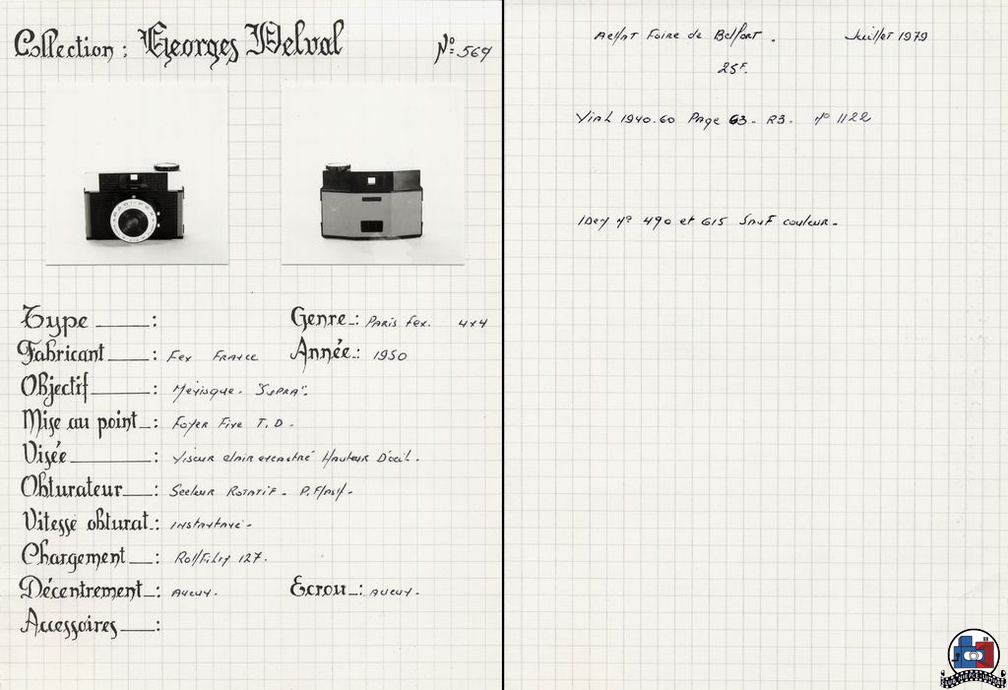 Collection : Georges Delval N° 569
Type : Genre : Paris Fex. 4x4
Fabricant : Fex France Année : 1950
Objectif : Ménisque. "Supra".
Mise au point : Foyer Fixe T.D.
Visée : Viseur clair encastré Hauteur D'oeil.
Obturateur : Secteur Rotatif - P. Flash.
Vitesse obturat. : instantané -
Chargement : RollFilm 127.
Décentrement : Aucun. Ecrou : Aucun.
Accessoires :
Achat Foire de Belfort . Juillet 1979
25F.
Vial 1940.60 Page 63 - R3. n° 1122
Idem n° 490 et 615 Sauf couleur -